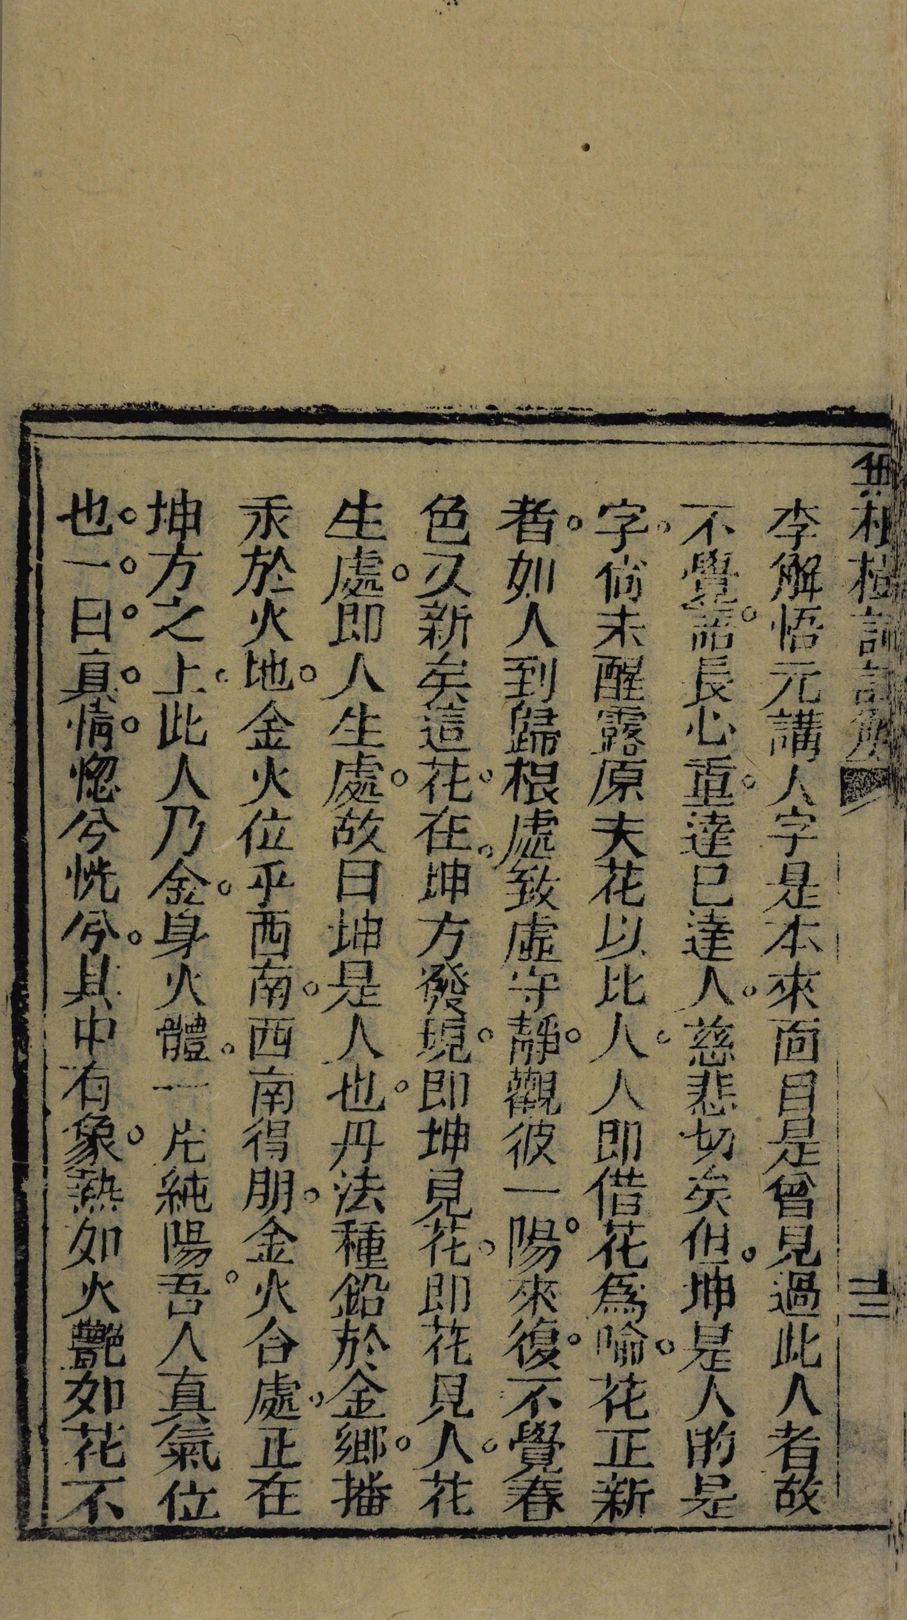 無根樹詞註解
十三
李解悟元講人字是本來面目是曾見過此人者故
不覺。語長心重。達已達人。慈悲切矣但。坤是人的是
字。尙未醒露原夫花以比人。人即借花爲喻。花正新
者。如人到歸根處致虛守靜。觀彼一陽。來復。不覺春
色又新矣這花。在。坤方發現。即坤見花。即花見人。花
生處。即人生處。故曰坤是人也。丹法種鉛於金鄉。播
汞於火地。金火位乎西南。西南得朋。金火合處。正在
坤方之上。此人乃金。身火體。一片純陽。吾人真氣位
也。一。曰。真。情。惚兮恍兮。其中有象。熱如火艷如花不